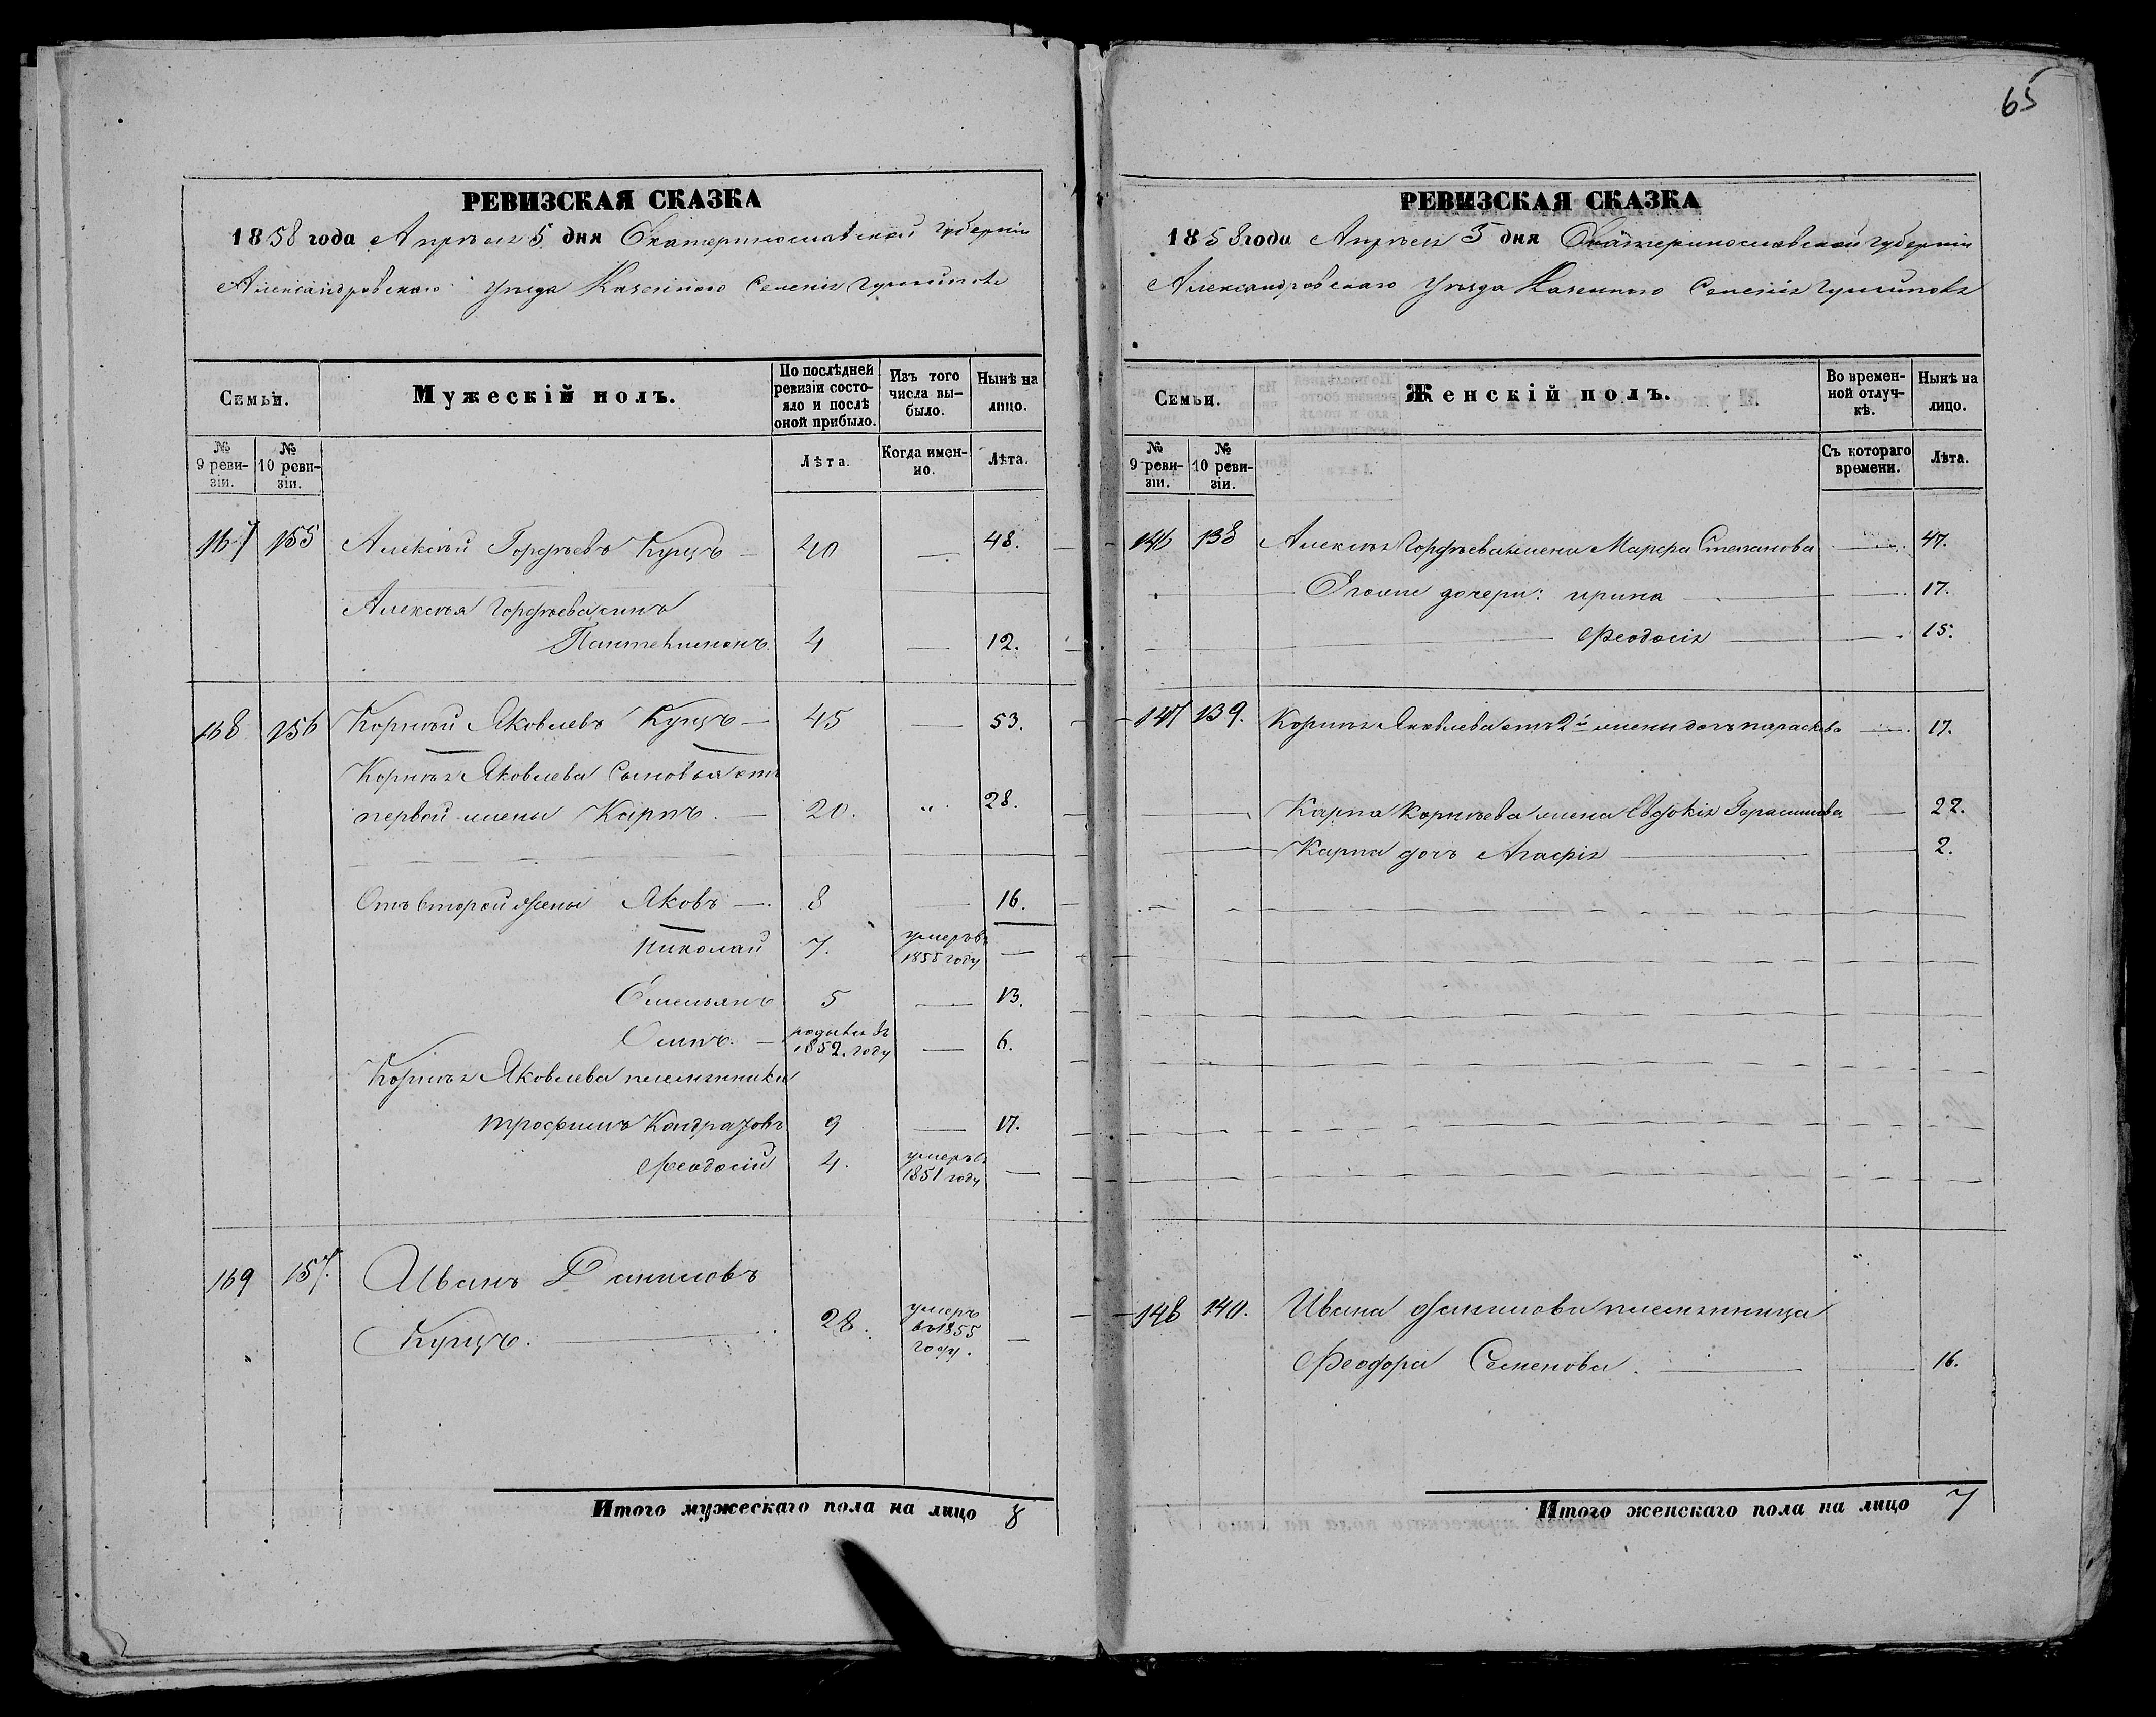 65
РЕВИЗСКАЯ СКАЗКА
1858 года Апрѣля 5 дня Екатеринославской губерніи
Александровскаго уѣзда Казеннаго Селенія
Семьи.
Мужескій полъ.
По послѣдней ревизіи состояло и послѣ оной прибыло.
Изъ того числа выбыло.
Нынѣ на лицо.
№ 9 ревизіи.
№ 10 ревизіи.
Лѣта.
Когда именно.
Лѣта.
167 155 Алексѣй Гордѣевъ Куцъ — 40 — 48.
Алексѣя Гордѣева сынъ
Пантелимонъ. 4 — 12.
168 156 Корнѣй Яковлевъ Куцъ — 45 — 53.
Корнѣя Яковлева Сыновья отъ
первой жены Карпъ. — 20. „ 28.
Отъ второй жены Яковъ — 8 — 16.
Николай 7. умеръ въ 1855 году —
Емельянъ 5 — 13.
Осипъ. — родился въ 1852. году — 6.
Корнѣя Яковлева племянники
Трофимъ Кондратовъ 9 — 17.
Феодосій 4. умеръ въ 1851 году —
169 157. Иванъ Даниловъ
Куцъ. — 28. умеръ въ 1855 году. —
Итого мужескаго пола на лицо 8
РЕВИЗСКАЯ СКАЗКА
1858 года Апрѣля 5 дня Екатеринославской губерніи
Александровскаго уѣзда Казеннаго Селенія
Семьи.
Женскій полъ.
Во временной отлучкѣ.
Нынѣ на лицо.
№ 9 ревизіи.
№ 10 ревизіи.
Съ котораго времени.
Лѣта.
146 138 Алексѣя Гордѣева жена Марфа Степанова — 47.
Его же дочери: Ирина — 17.
Феодосія — 15.
147 139. Корнѣя Яковлева отъ 2й жены дочь Параскева — 17.
Карпа Корнѣева жена Евдокія Герасимова — 22.
Карпа дочь Агафія — 2.
148 140. Ивана Данилова племянница
Феодора Семенова. — 16.
Итого женскаго пола на лицо 7